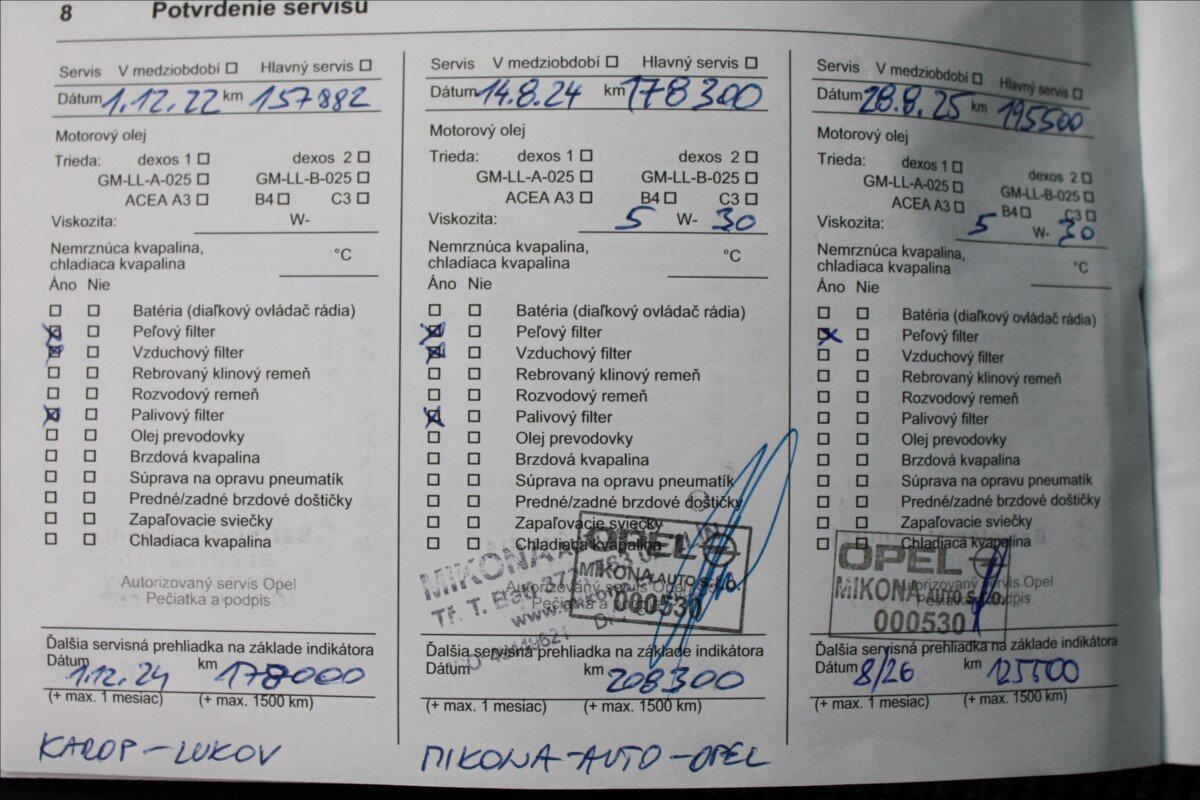 8 Potvrdenie servisu
Servis V medziobdobí Hlavný servis
Dátum 1.12.22 km 157882
Motorový olej
Trieda: dexos 1 dexos 2
GM-LL-A-025 GM-LL-B-025
ACEA A3 B4 C3
Viskozita: W-
Nemrznúca kvapalina,
chladiaca kvapalina °C
Áno Nie
Batéria (diaľkový ovládač rádia)
Peľový filter
Vzduchový filter
Rebrovaný klinový remeň
Rozvodový remeň
Palivový filter
Olej prevodovky
Brzdová kvapalina
Súprava na opravu pneumatík
Predné/zadné brzdové doštičky
Zapaľovacie sviečky
Chladiaca kvapalina
Autorizovaný servis Opel
Pečiatka a podpis
Ďalšia servisná prehliadka na základe indikátora
Dátum 1.12.24 km 178000
(+ max. 1 mesiac) (+ max. 1500 km)
KAROP - LUKOV
Servis V medziobdobí Hlavný servis
Dátum 14.8.24 km 178300
Motorový olej
Trieda: dexos 1 dexos 2
GM-LL-A-025 GM-LL-B-025
ACEA A3 B4 C3
Viskozita: 5 W- 30
Nemrznúca kvapalina,
chladiaca kvapalina °C
Áno Nie
Batéria (diaľkový ovládač rádia)
Peľový filter
Vzduchový filter
Rebrovaný klinový remeň
Rozvodový remeň
Palivový filter
Olej prevodovky
Brzdová kvapalina
Súprava na opravu pneumatík
Predné/zadné brzdové doštičky
Zapaľovacie sviečky
Chladiaca kvapalina
OPEL
MIKONA AUTO s.r.o.
000530
MIKONA
Tř. T. Bati
Autorizovaný servis Opel
Pečiatka a podpis
Ďalšia servisná prehliadka na základe indikátora
Dátum km 208300
(+ max. 1 mesiac) (+ max. 1500 km)
MIKONA-AUTO-OPEL
Servis V medziobdobí Hlavný servis
Dátum 28.8.25 km 195500
Motorový olej
Trieda: dexos 1 dexos 2
GM-LL-A-025 GM-LL-B-025
ACEA A3 B4 C3
Viskozita: 5 W- 30
Nemrznúca kvapalina,
chladiaca kvapalina °C
Áno Nie
Batéria (diaľkový ovládač rádia)
Peľový filter
Vzduchový filter
Rebrovaný klinový remeň
Rozvodový remeň
Palivový filter
Olej prevodovky
Brzdová kvapalina
Súprava na opravu pneumatík
Predné/zadné brzdové doštičky
Zapaľovacie sviečky
Chladiaca kvapalina
OPEL
Autorizovaný servis Opel
MIKONA AUTO s.r.o.
Pečiatka a podpis
000530
Ďalšia servisná prehliadka na základe indikátora
Dátum 8/26 km 125500
(+ max. 1 mesiac) (+ max. 1500 km)